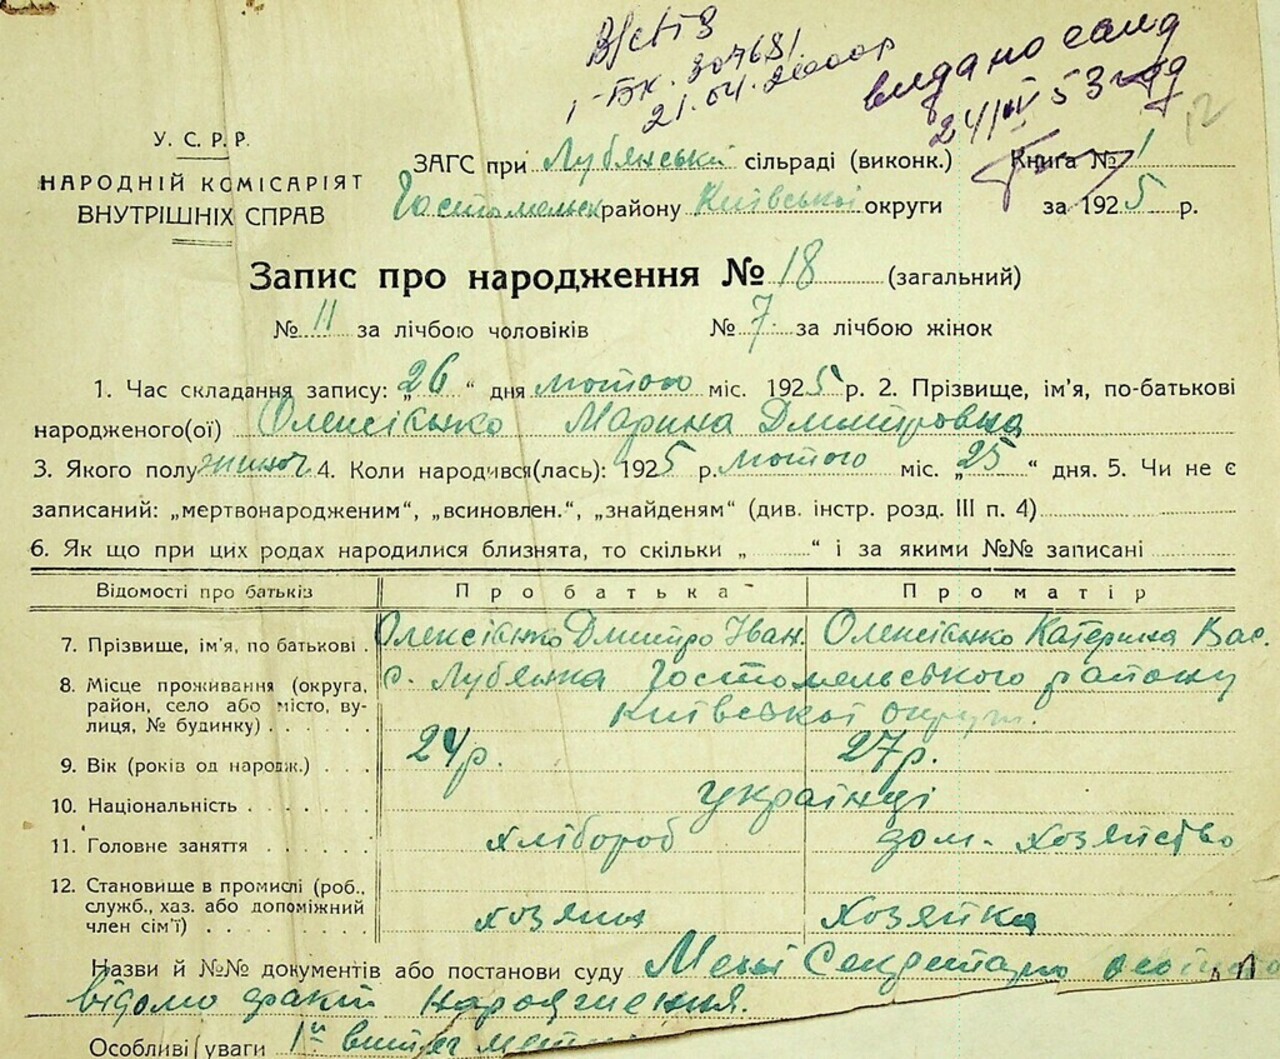 І-БК. 307681
21.04.2000р
видано
24/IV 53
У. С. Р. Р.
НАРОДНІЙ КОМІСАРІЯТ
ВНУТРІШНІХ СПРАВ
ЗАГС при Лубянській сільраді (виконк.) Книга № 1
Гостомельск району Київської округи за 1925 р.
Запис про народження № 18 (загальний)
№ 11 за лічбою чоловіків № 7 за лічбою жінок
1. Час складання запису: „26“ дня лютого міс. 1925 р. 2. Прізвище, ім'я, по-батькові
народженого(ої) Олексієнко Марина Дмитровна
3. Якого полу жіноч. 4. Коли народився(лась): 1925 р. лютого міс. „25“ дня. 5. Чи не є
записаний: „мертвонародженим“, „всиновлен.“, „знайденям“ (див. інстр. розд. III п. 4)
6. Як що при цих родах народилися близнята, то скільки „ “ і за якими №№ записані
Відомості про батьків Про батька Про матір
7. Прізвище, ім'я, по батькові Олексієнко Дмитро Іван. Олексієнко Катерина Вас.
8. Місце проживання (округа, с. Лубянка Гостомельського району
район, село або місто, ву- Київської округи.
лиця, № будинку)
9. Вік (років од народж.) 24 р. 27 р.
10. Національність українці
11. Головне заняття хлібороб дом. хозяйство
12. Становище в промислі (роб.,
служб., хаз. або допоміжний
член сім'ї) хозяин хозяйка
Назви й №№ документів або постанови суду Мені Секретарю
відомо факт народження.
Особливі уваги 1й витяг